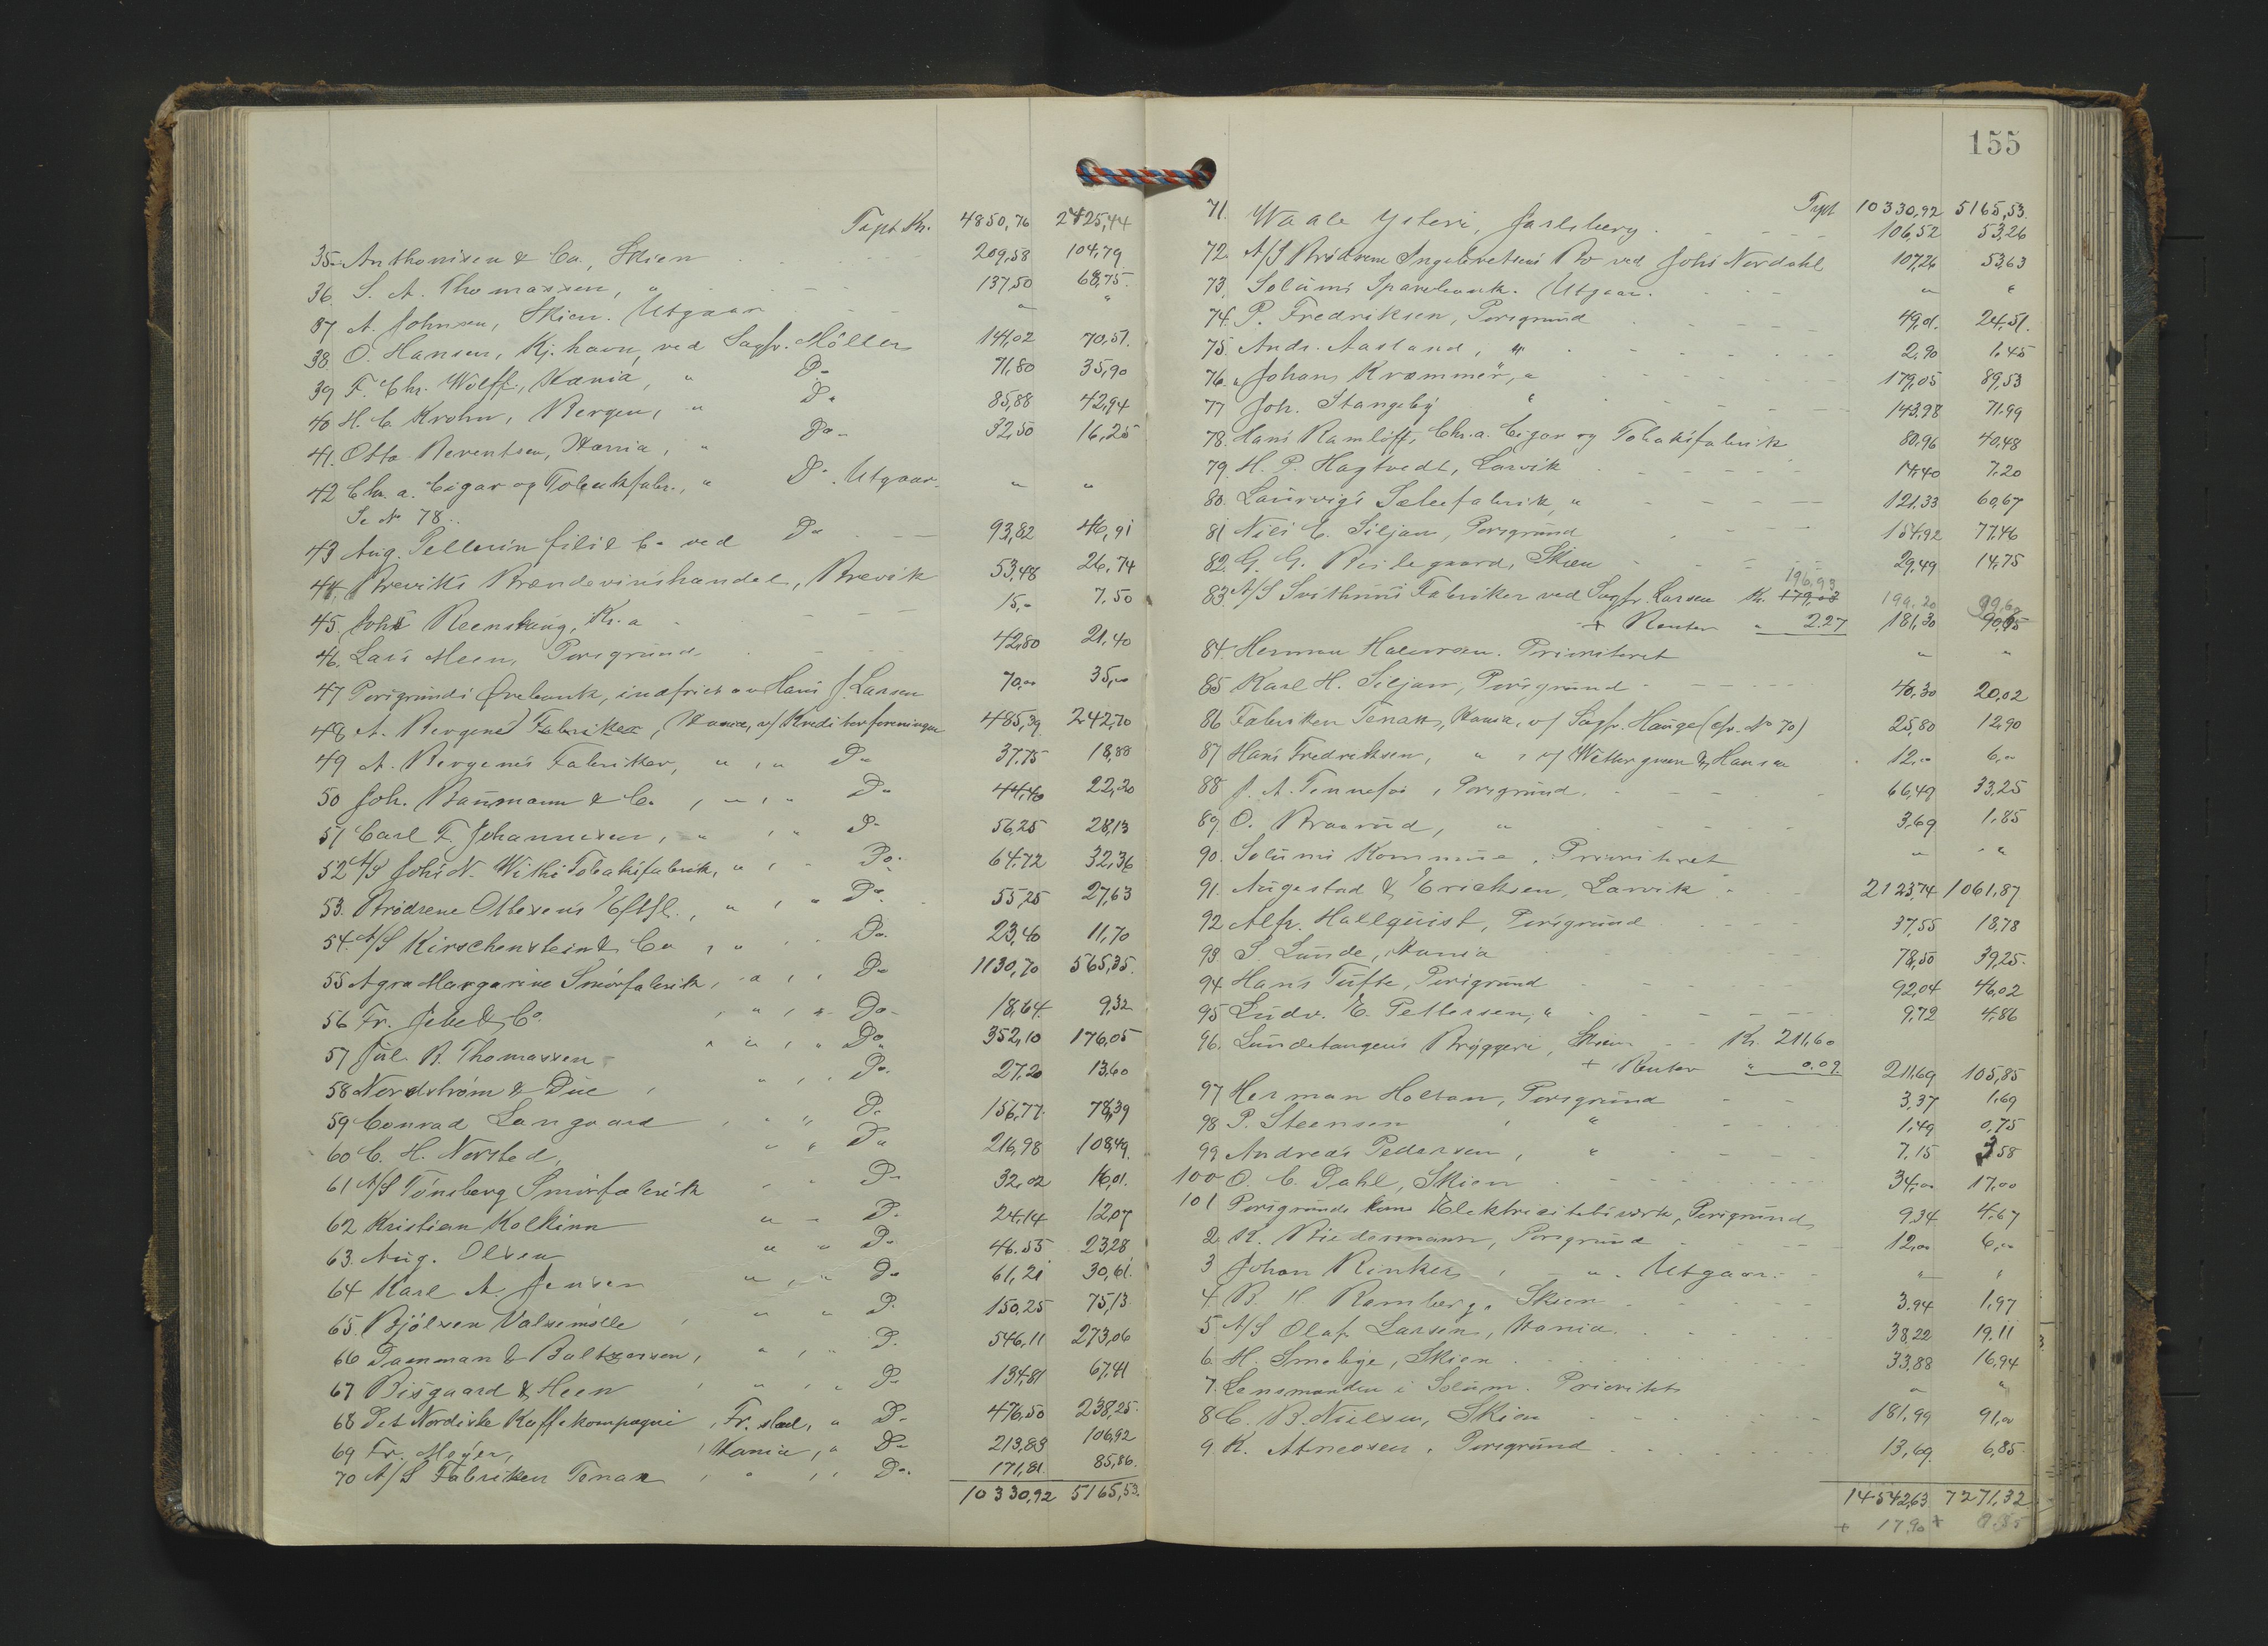 Tapt Kr. 4850,76 2425,44
35. Anthonisen & Co., Skien 209,58 104,79
36. S. A. Thomassen, " 137,50 68,75
37 A. Johnsen, Skien. Utgaar " "
38 O. Hansen, Kj.havn, ved Sagfr. Möller 141,02 70,51
39 F. Chr. Wolff, Kr.ania, " Do 71,80 35,90
40 H. C. Krohn, Bergen, " Do 85,88 42,94
41. Otto Berentsen, Kr.ania, " Do 32,50 16,25
42 Chr.a. Cigar og Tobakfabr., " Do. Utgaar. " "
Se No 78.
43 Aug. Pellerin fils & Co ved Do 93,82 46,91
44. Breviks Brændevinshandel, Brevik 53,48 26,74
45. Johs Reenskaug, Kr.a 15,- 7,50
46. Lars Meen, Porsgrund 42,80 21,40
47 Porsgrunds Örebank, indfriet av Hans J. Larsen 70,00 35,00
48 A. Borgens Fabriker, Kr.ania, v/ Kreditorforeningen 485,39 242,70
49 A. Borgens Fabrikker, " , " Do 37,75 18,88
50 Joh. Baumann & Co , " , " Do 44,40 22,20
51 Carl F. Johannesen, " , " Do 56,25 28,13
52 A/S Johs N. Withs Tobaksfabrik, " , " Do. 64,72 32,36
53. Brødrene Ottesens Eftfl., " , " Do. 55,25 27,63
54. A/S Kirschenstein & Co , " , " Do. 23,40 11,70
55 Agra Margarine Smörfabrik, " , " Do 1130,70 565,35
56 Fr. Jebe & Co. , " , " Do 18,64 9,32
57 Jul. R. Thomassen , " , " Do 352,10 176,05
58 Nordström & Due , " , " Do. 27,20 13,60
59 Conrad Langaard , " " Do 156,77 78,39
60 C. H. Norsted, " " Do 216,98 108,49
61 A/S Tönsberg Smörfabrik " " Do 32,02 16,01
62 Kristian Kolkinn " " Do 24,14 12,07
63. Aug. Olsen " " Do 46.55 23,28
64 Karl A. Jensen " , " Do 61,21 30,61
65. Bjölsen Valsemölle , " " Do 150,25 75,13
66 Damman & Baltzersen, " , " Do 546,11 273,06
67 Bisgaard & Heen , " , " Do 134,81 67,41
68 Det Nordiske Kaffekompagni , Fr.stad, " Do 476,50 238,25
69 Fr. Meyer, , Kr.ania, " Do 213,83 106,92
70 A/S Fabriken Tenax , " , " Do. 171,81 85,86
10330,92 5165,53
155
Trpt 10330,92 5165,53
71. Waale Ysteri, Jarlsberg 106,52 53,26
72. A/S Brödrene Ingebretsens Bo ved Johs Nordahl 107,26 53,63
73. Solums Sparebank. Utgaar. " "
74. P. Fredriksen, Porsgrund 49,01 24,51
75. Andr. Aasland, " 2,90 1,45
76. Johans Krømmer, " 179,05 89,53
77 Joh. Stangeby " 143,98 71,99
78. Hans Ramlöff, Chr.a. Cigar og Tobaksfabrik 80,96 40,48
79. H. P. Hagtvedt, Larvik 14,40 7,20
80. Laurvigs Sæbefabrik, " 121,33 60,67
81 Nils C. Siljan, Porsgrund 154,92 77,46
82. G. G. Beilegaard, Skien 29,49 14,75
196,93
83. A/S Svithuns Fabriker ved Sagfr. Larsen Kr. 179,03 199,20 99,60
+ Renter " 2.27 181,30 90,65
84. Herman Halvorsen. Prioriteret " "
85 Karl H. Siljan, Porsgrund 40,30 20,02
86 Fabriken Tenax, Kr.ania, v/ Sagfr. Hauge (cfr. No 70) 25,80 12,90
87 Hans Fredriksen, " , v/ Wittergreen & Hansen 12,00 6,00
88 J. A. Tennefos, Porsgrund. 66,49 33,25
89 O. Braarud, " 3,69 1,85
90. Solums Kommune, Prioriteret " "
91. Augestad & Ericksen, Larvik 2123,74 1061,87
92 Alfr. Hallquist, Porsgrund 37,55 18,78
93 S. Lunde, Kr.ania 78,50 39,25
94 Hans Tufte, Porsgrund 92,04 46,02
95 Ludv. E. Pettersen, " 9,72 4,86
96. Lundetangens Bryggeri, Skien Kr. 211,60
+ Renter " 0.09 211,69 105,85
97 Herman Holtan, Porsgrund 3,37 1,69
98 P. Steensen , " 1,49 0,75
99 Andreas Pedersen, " 7,15 3,58
100 O. C. Dahl, Skien 34,00 17,00
101 Porsgrunds kom. Elektricitetsverk, Porsgrund 9,34 4,67
2 K. Biedermann, Porsgrund 12,00 6,00
3 Johan Rinker , " . Utgaar. " "
4. B. H. Ramberg, Skien 3,94 1,97
5 A/S Olaf Larsen, Kr.ania. 38,22 19,11
6. H. Smebye, Skien 33,88 16,94
7. Lensmanden i Solum. Prioritets " "
8 C. B. Nielsen, Skien 181,99 91,00
9. K. Abneosen, Porsgrund 13,69 6,85
14542,63 7271,32
+ 17,90 + 8.95